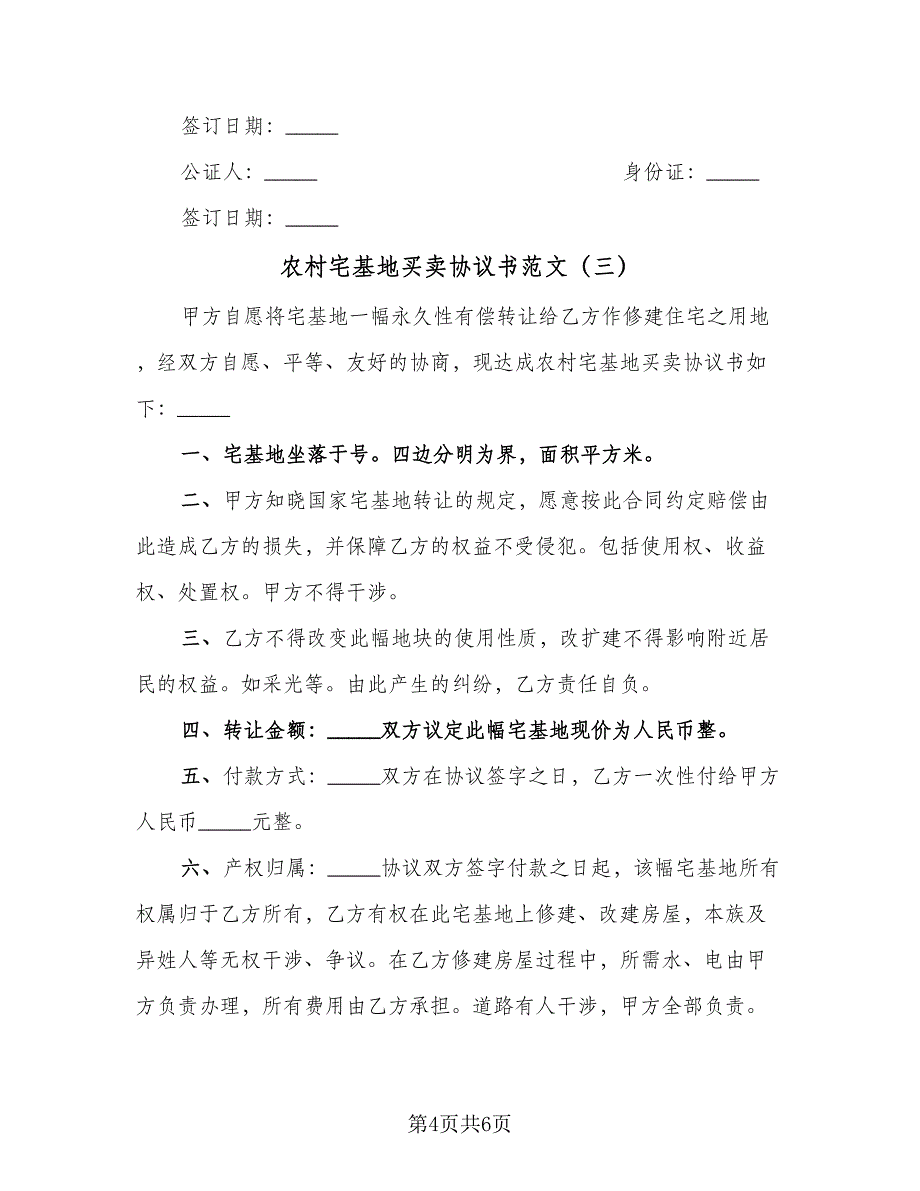 签订日期：_____
公证人：_____ 身份证：_____
签订日期：_____
农村宅基地买卖协议书范文（三）
甲方自愿将宅基地一幅永久性有偿转让给乙方作修建住宅之用地
，经双方自愿、平等、友好的协商，现达成农村宅基地买卖协议书如
下：_____
一、宅基地坐落于号。四边分明为界，面积平方米。
二、甲方知晓国家宅基地转让的规定，愿意按此合同约定赔偿由
此造成乙方的损失，并保障乙方的权益不受侵犯。包括使用权、收益
权、处置权。甲方不得干涉。
三、乙方不得改变此幅地块的使用性质，改扩建不得影响附近居
民的权益。如采光等。由此产生的纠纷，乙方责任自负。
四、转让金额：_____双方议定此幅宅基地现价为人民币整。
五、付款方式：_____双方在协议签字之日，乙方一次性付给甲方
人民币_____元整。
六、产权归属：_____协议双方签字付款之日起，该幅宅基地所有
权属归于乙方所有，乙方有权在此宅基地上修建、改建房屋，本族及
异姓人等无权干涉、争议。在乙方修建房屋过程中，所需水、电由甲
方负责办理，所有费用由乙方承担。道路有人干涉，甲方全部负责。
第4页共6页